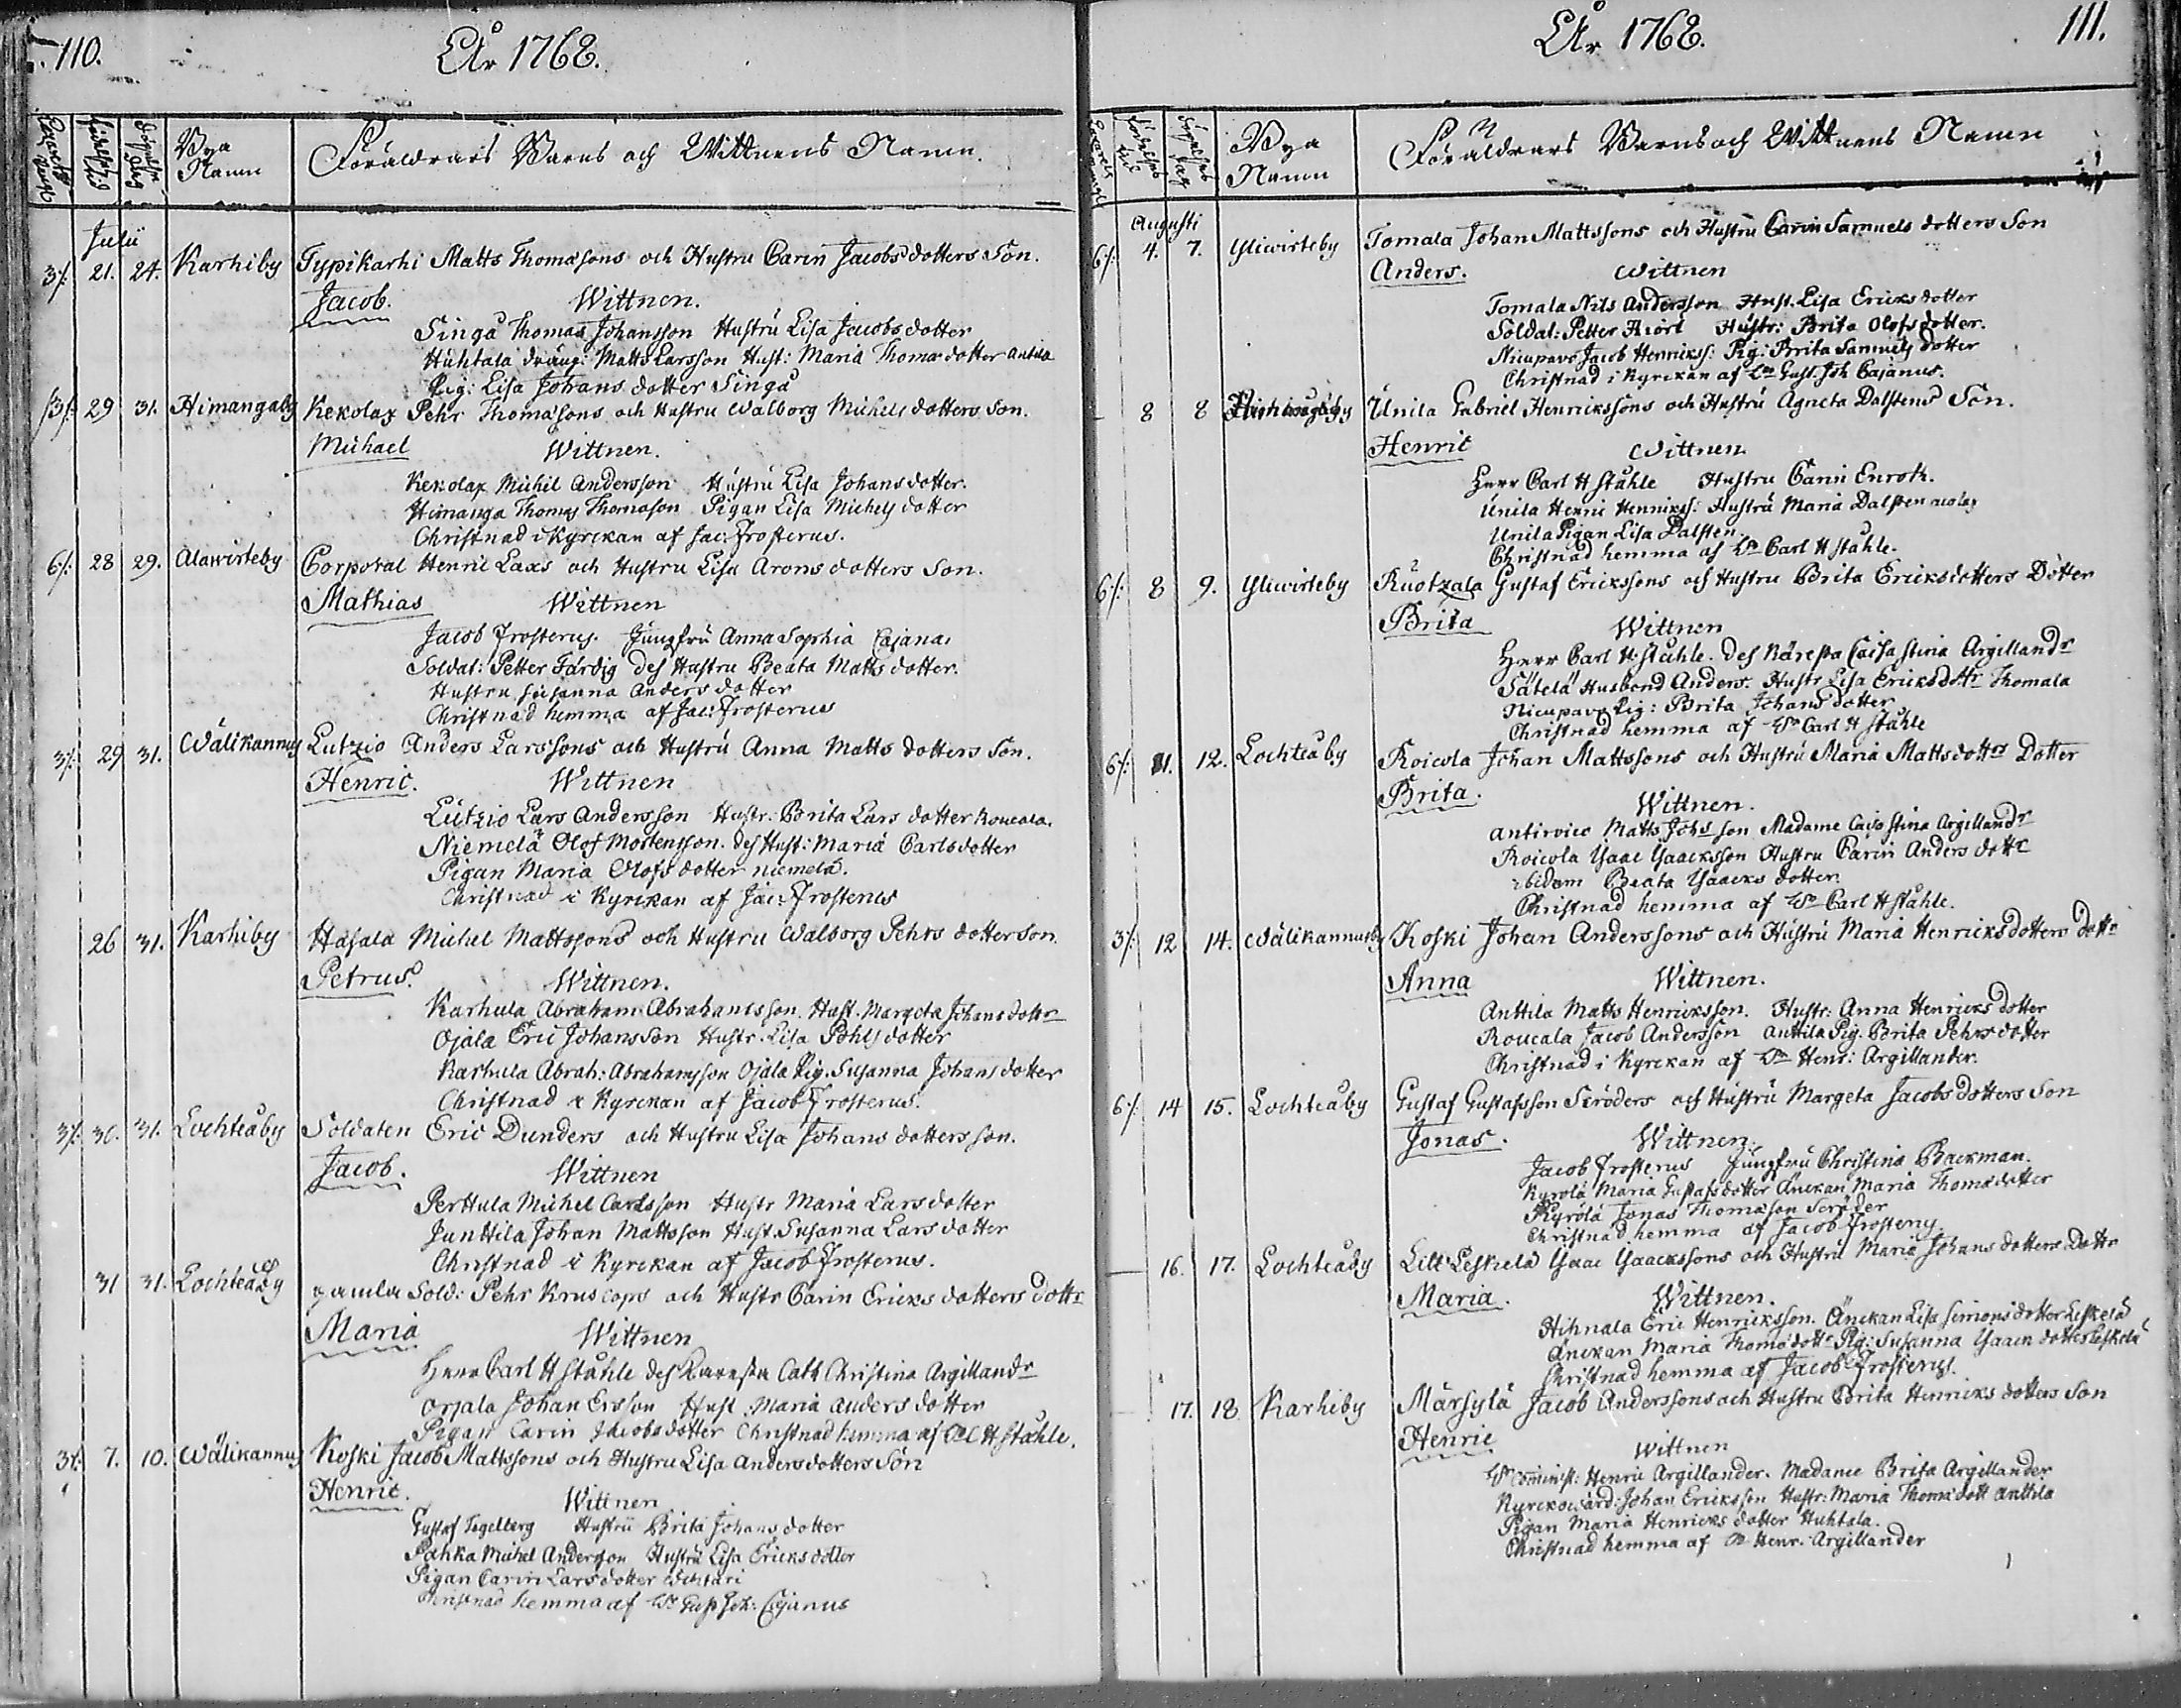 110.
År 1768.
Födelse tid
Döpelse dag
Bya Namn
Föräldrars Barns och Wittnens Namn.
Julii
3/: 21. 24. Karhiby Typikarhi Matts Thomæsons och Hustru Carin Jacobs dotters Son.
Jacob. Wittnen.
Singå Thomas Johansson Hustru Lisa Jacobs dotter
Huhtala dräng: Matts Larsson Hust: Maria Thomæ dotter Antila
Pig: Lisa Johans dotter Singå
3/: 29 31. Himangaby Kekolax Pehr Thomæsons och Hustru Walborg Michels dotters Son.
Michael Wittnen.
Kekolax Michel Andersson Hustru Lisa Johansdotter.
Himanga Thomas Thomæson Pigan Lisa Michels dotter
Christnad i Kyrckan af Jac: Frosterus.
6/: 28 29. Alawirteby Corporal Henric Laxs och Hustru Lisa Arons dotters Son.
Mathias Wittnen
Jacob Frosterus. Jungfru Anna Sophia Cajana,
Soldat: Petter Färdig des Hustru Beata Matts dotter.
Hustru Susanna Anders dotter
Christnad hemma af Jac: Frosterus
3/: 29 31. Wälikannus Lutzio Anders Larssons och Hustru Anna Matts dotters Son.
Henric. Wittnen
Lutzio Lars Andersson Hustr: Brita Lars dotter Roucala.
Niemelä Olof Mortensson. des Hust: Maria Carlsdotter
Pigan Maria Olofs dotter niemelä.
Christnad i Kyrckan af Jac: Frosterus
26 31. Karhiby Hasala Michel Mattssons och Hustru Walborg Pehrs dotter son.
Petrus. Wittnen.
Karhula Abraham Abrahamsson. Hust. Margeta Johans dottr
Ojala Eric Johansson Hustr. Lisa Pohls dotter
Karhula Abrah: Abrahamsson Ojala Pig. Susanna Johans dotter
Christnad i Kyrckan af Jacob Frosterus.
3/: 30. 31. Lochteåby Soldaten Eric Dunders och Hustru Lisa Johans dotters son.
Jacob. Wittnen
Perttula Michel Carlsson Hustr Maria Lars dotter
Junttila Johan Mattsson Hust. Susanna Lars dotter
Christnad i Kyrckan af Jacob Frosterus.
31 31. Lochteåby gamla Sold: Pehr Kruscops och Hustr Carin Ericks dotters dottr
Maria Wittnen
Herr Carl H Ståhle des Käresta Cath Christina Argillandr
Orjala Johan Ersson Hust. Maria Anders dotter
Pigan Carin Jacobs dotter Christnad hemma af Cl H Ståhle.
3/: 7. 10. Wälikannus Koski Jacob Mattssons och Hustru Lisa Anders dotters Son
Henric. Wittnen
Gustaf Tegelberg Hustru Brita Johans dotter
Pahka Michel Andersson Hustru Lisa Ericks dotter
Pigan Carin Lars dotter
Christnad hemma af Wp Gust Joh: Cajanus
År 1768.
111.
Födelse tid
Döpelse dag
Bya Namn
Föräldrars Barns och Wittnens Namn
Augusti
6/: 4. 7. Yliwirteby Tomala Johan Mattssons och Hustru Carin Samuels dotters Son
Anders. Wittnen
Tomala Nils Andersson Hust. Lisa Ericks dotter
Soldat: Petter Hiört Hustr: Brita Olofs dotter.
Nicupavo Jacob Henrickss: Pig: Brita Samuels dotter
Christnad i Kyrckan af Gust. Joh Cajanus.
8 8 Unila Gabriel Henrickssons och Hustru Agneta Dalstens Son.
Henric Wittnen.
Herr Carl H Ståhle Hustru Carin Enroth.
Unila Henric Henrickss: Hustru Maria Dalsten
Unila Pigan Lisa Dalsten
Christnad hemma af Carl H Ståhle.
6/: 8 9. Yliwirteby Ruotzala Gustaf Erickssons och Hustru Brita Ericksdotters Dotter
Brita Wittnen
Herr Carl H Ståhle. des Käresta Caisa Stina Argillandr
Sätelä Husbond Anders. Hustr Lisa Ericksdottr Thomala
Nicupavo Pig: Brita Johans dotter
Christnad hemma af Carl H Ståhle
6/: 11. 12. Lochteåby Roicola Johan Mattssons och Hustru Maria Mattsdotts Dotter
Brita. Wittnen.
Antiroico Matts Johsson Madame Caisa Stina Argillandr
Roicola Ysaac Ysacksson Hustru Carin Anders dottr
ibidem Beata Ysaacks dotter.
Christnad hemma af Carl H Ståhle.
3/: 12 14. Wälikannusby Koski Johan Anderssons och Hustru Maria Henricks dotters dottr
Anna Wittnen.
Anttila Matts Henricksson. Hustr: Anna Henricks dotter
Roucala Jacob Andersson Anttila Pig. Brita Pehrs dotter
Christnad i Kyrckan af Henr: Argillander.
6/: 14 15. Lochteåby Gustaf Gustafsson Scröders och Hustru Margeta Jacobs dotters Son
Jonas. Wittnen.
Jacob Frosterus Jungfru Christina Backman.
Kyrölä Maria Gustafs dotter Änckan Maria Thomædotter
Kyrölä Jonas Thomæson Scröder
Christnad hemma af Jacob Frosterus.
16. 17. Lochteåby Lill Leskelä Ysaac Ysaackssons och Hustru Maria Johans dotters Dottr
Maria. Wittnen.
Hihnala Eric Henricksson. Änckan Lisa Simons dotter Leskelä
Änckan Maria Thomædottr Pig: Susanna Ysaacs dotter Leskelä
Christnad hemma af Jacob Frosterus.
17. 18 Karhiby Märsylä Jacob Anderssons och Hustru Brita Henricks dotters Son
Henric Wittnen
Comminist: Henric Argillander. Madame Brita Argillander
Kyrckowärd: Johan Ericksson Hustr: Maria Thomædott Anttila
Pigan Maria Henricks dotter Huhtala.
Christnad hemma af Henr. Argillander